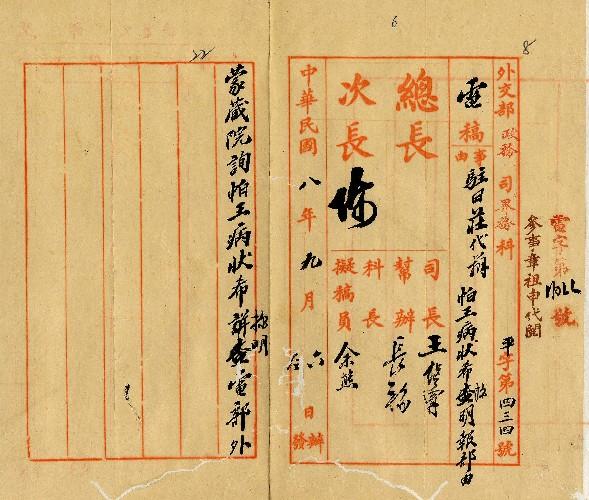 8
6
22
電字第
號
參事章祖申代閱
外交部政務司界務科
平字第四三四號
電稿
事由
駐日莊代辦 怕王病狀布查明報部由
總長
次長
司長
王
幫辦
長
科長
擬稿員
余
中華民國八年九月六日
辦發
蒙藏院詢怕王病狀布
詳查電部外